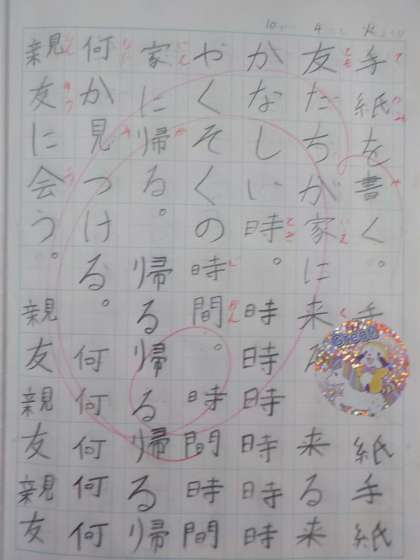 手紙を書く。手紙手紙
友だちが家に来る来る来
かなしい時。時時時時時時
やくそくの時間。時間時間
家に帰る。帰る帰る帰る帰
何か見つける。何何何何何
親友に会う。親友親友親友